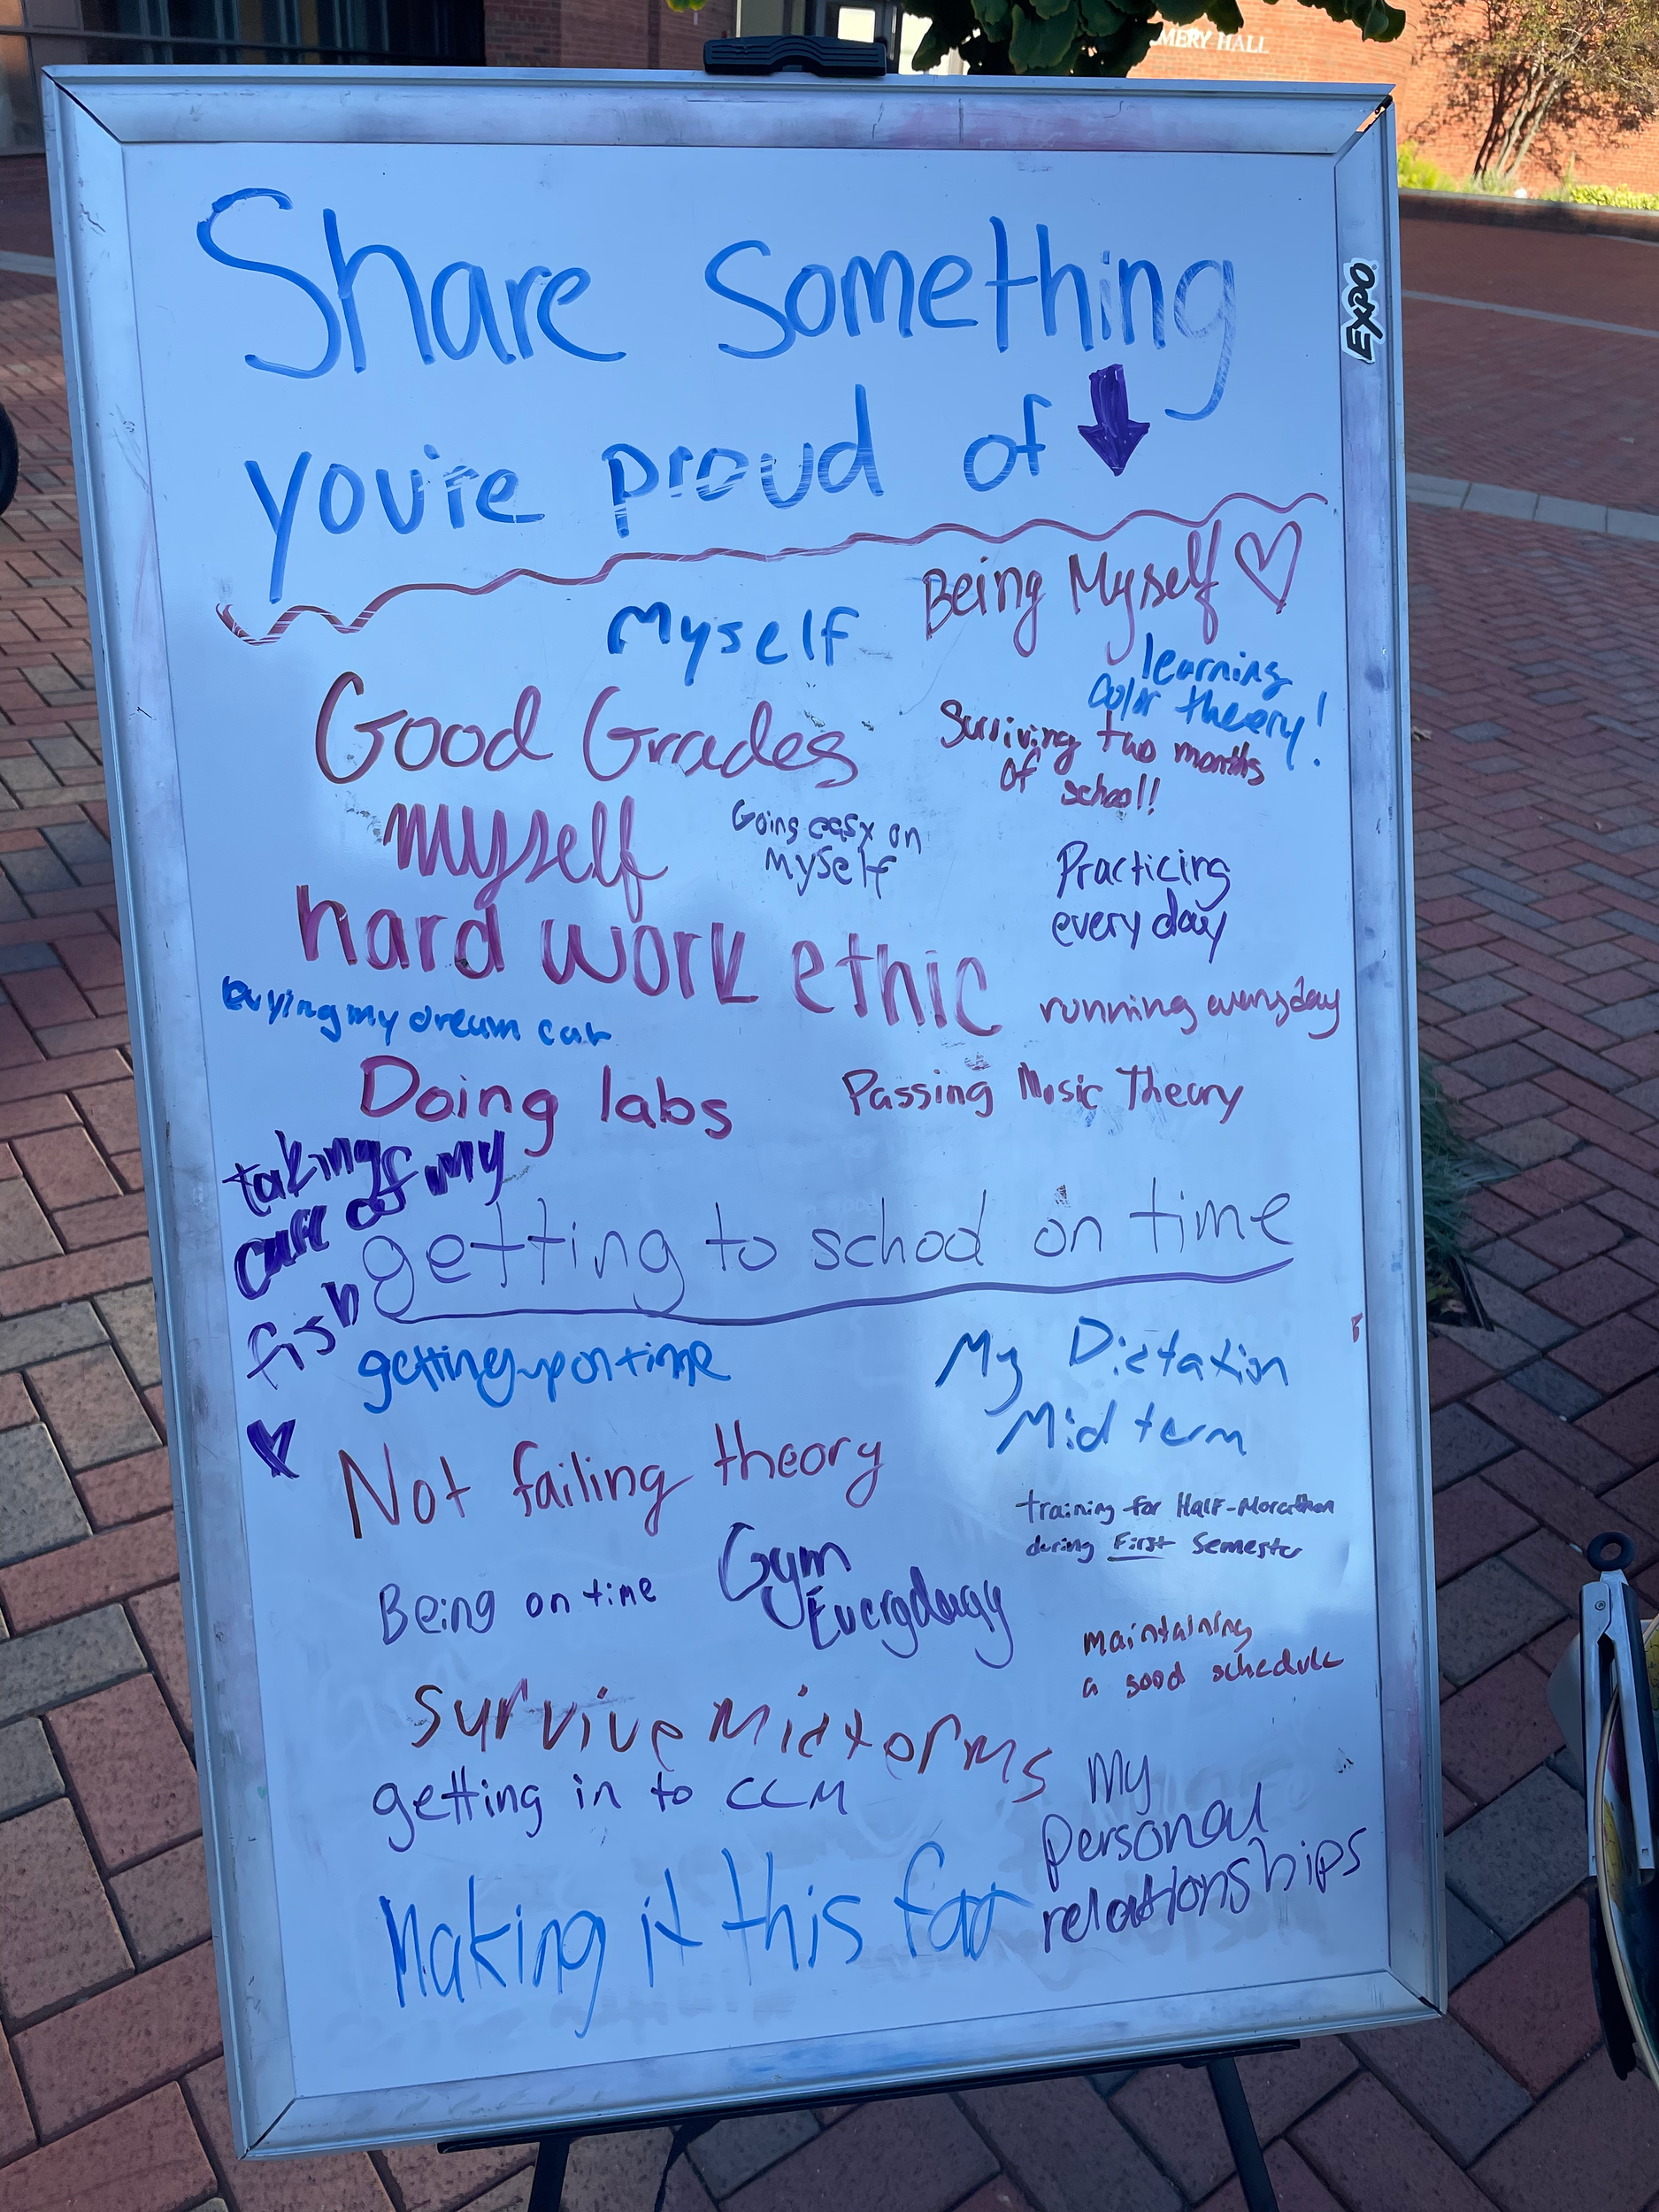 MERY HALL
EXPO
Share something
you're proud of
Being Myself
Myself
learning
color theory!
Good Grades
Surviving two months
of school!!
myself
Going easy on
Myself
Practicing
every day
hard work ethic
buying my dream car
running everyday
Doing labs
Passing Music Theory
taking
care of my
fish
getting to school on time
getting up on time
My Dictation
Midterm
Not failing theory
training for Half-Marathon
during First Semester
Being on time
Gym
Everyday
maintaining
a good schedule
Survive Midterms
getting in to CCM
My
personal
relationships
Making it this far